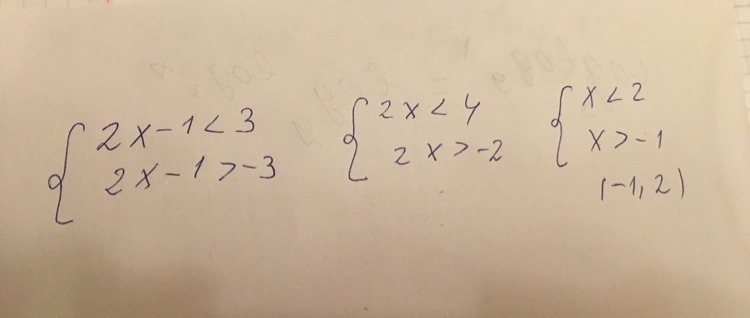 2x-1<3
2x-1>-3
2x<4
2x>-2
x<2
x>-1
(-1,2)